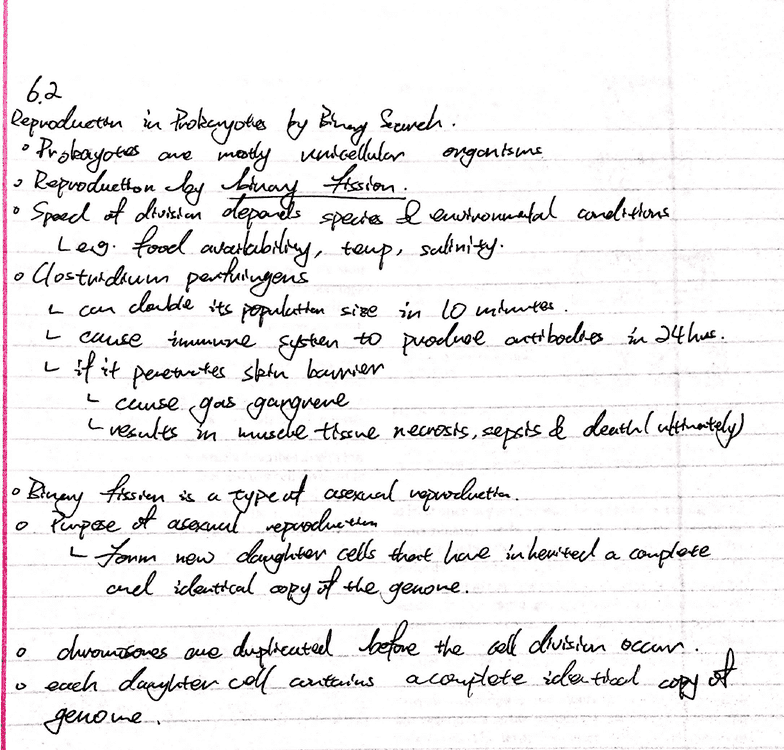 6.2
Reproduction in Prokaryotes by Binary Search.
◦ Prokayotes are mostly unicellular organisms
◦ Reproduction by binary fission.
◦ Speed of division depends species & environmental conditions
└ e.g. food availability, temp, salinity.
◦ Clostridium perfringens
└ can double its population size in 10 minutes.
└ cause immune system to produce antibodies in 24hrs.
└ if it penetrates skin barrier
└ cause gas gangrene
└ results in muscle tissue necrosis, sepsis & death (ultimately)
◦ Binary fission is a type of asexual reproduction.
◦ Purpose of asexual reproduction
└ Form new daughter cells that have inherited a complete
and identical copy of the genome.
◦ chromosomes are duplicated before the cell division occurr.
◦ each daughter cell contains a complete identical copy of
genome.